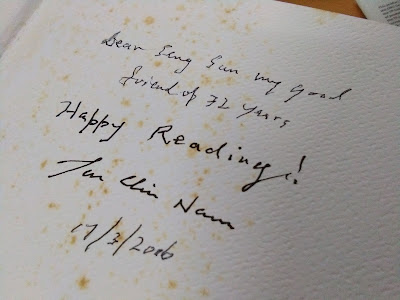 Dear Seng Gun my good
friend of 32 years
Happy Reading!
Tan Chin Nam
17/3/2006